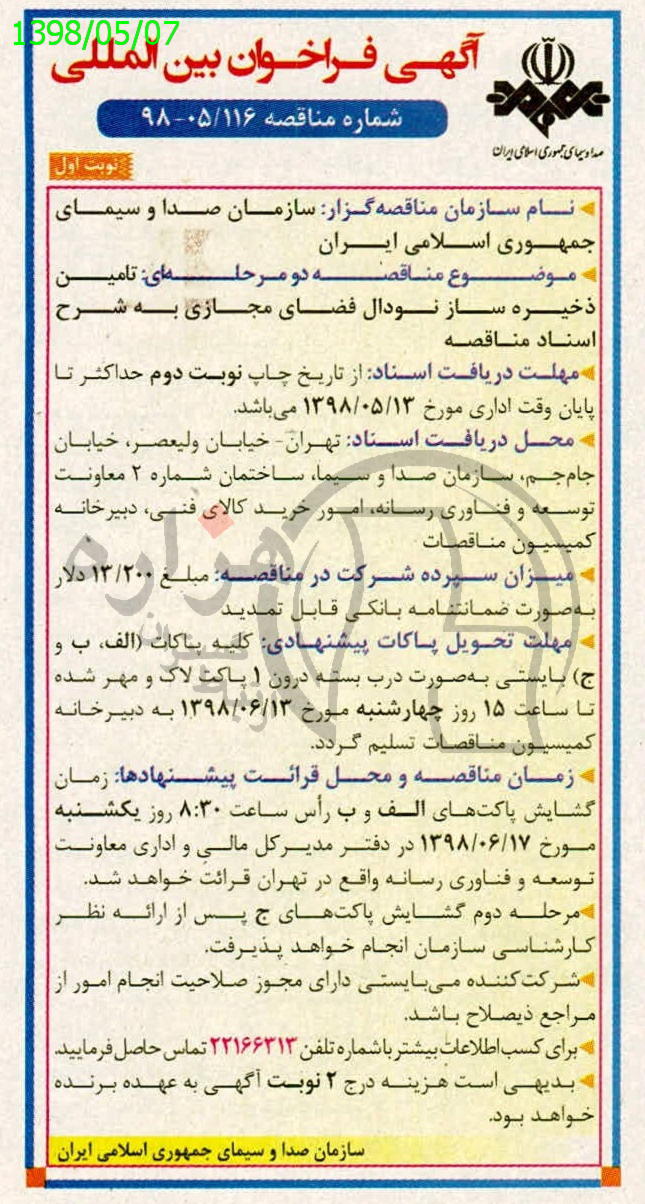 1398/05/07
آگهی فراخوان بین المللی
شماره مناقصه ۰۵/۱۱۶-۹۸
صدا و سیمای جمهوری اسلامی ایران
نوبت اول
نام سازمان مناقصه‌گزار: سازمان صدا و سیمای
جمهوری اسلامی ایران
موضوع مناقصه دو مرحله‌ای: تامین
ذخیره ساز نودال فضای مجازی به شرح
اسناد مناقصه
مهلت دریافت اسناد: از تاریخ چاپ نوبت دوم حداکثر تا
پایان وقت اداری مورخ ۱۳۹۸/۰۵/۱۳ می‌باشد.
محل دریافت اسناد: تهران- خیابان ولیعصر، خیابان
جام‌جم، سازمان صدا و سیما، ساختمان شماره ۲ معاونت
توسعه و فناوری رسانه، امور خرید کالای فنی، دبیرخانه
کمیسیون مناقصات
میزان سپرده شرکت در مناقصه: مبلغ ۱۳/۲۰۰ دلار
به‌صورت ضمانتنامه بانکی قابل تمدید
مهلت تحویل پاکات پیشنهادی: کلیه پاکات (الف، ب و
ج) بایستی به‌صورت درب بسته درون ۱ پاکت لاک و مهر شده
تا ساعت ۱۵ روز چهارشنبه مورخ ۱۳۹۸/۰۶/۱۳ به دبیرخانه
کمیسیون مناقصات تسلیم گردد.
زمان مناقصه و محل قرائت پیشنهادها: زمان
گشایش پاکت‌های الف و ب رأس ساعت ۸:۳۰ روز یکشنبه
مورخ ۱۳۹۸/۰۶/۱۷ در دفتر مدیرکل مالی و اداری معاونت
توسعه و فناوری رسانه واقع در تهران قرائت خواهد شد.
مرحله دوم گشایش پاکت‌های ج پس از ارائه نظر
کارشناسی سازمان انجام خواهد پذیرفت.
شرکت‌کننده می‌بایستی دارای مجوز صلاحیت انجام امور از
مراجع ذیصلاح باشد.
برای کسب اطلاعات بیشتر با شماره تلفن ۲۲۱۶۶۳۱۳ تماس حاصل فرمایید.
بدیهی است هزینه درج ۲ نوبت آگهی به عهده برنده
خواهد بود.
سازمان صدا و سیمای جمهوری اسلامی ایران
هزاره